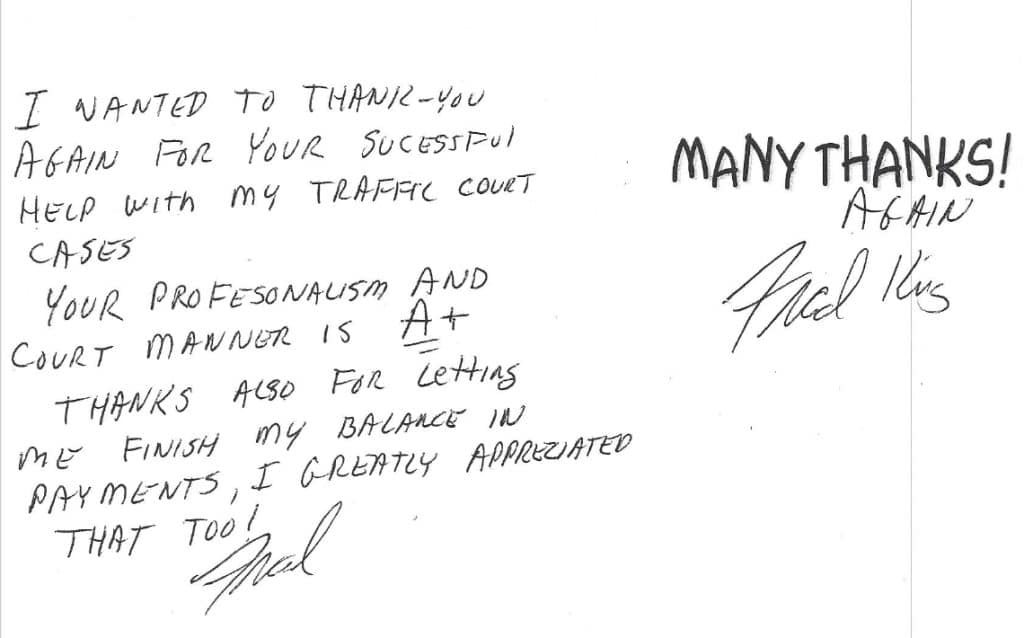 I WANTED TO THANK-YOU
AGAIN FOR YOUR SUCESSFUl
HELP WITh MY TRAFFIC COURT
CASES
YOUR PROFESONALISM AND
COURT MANNER IS A+
THANKS ALSO FOR LettING
ME FINISH MY BALANCE IN
PAYMENTS, I GREATLY APPRECIATED
THAT TOO!
Fred
MANY THANKS!
AGAIN
Fred King